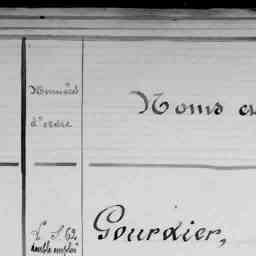 Numéros
d'ordre
Noms
62
double emploi
Gourdier,